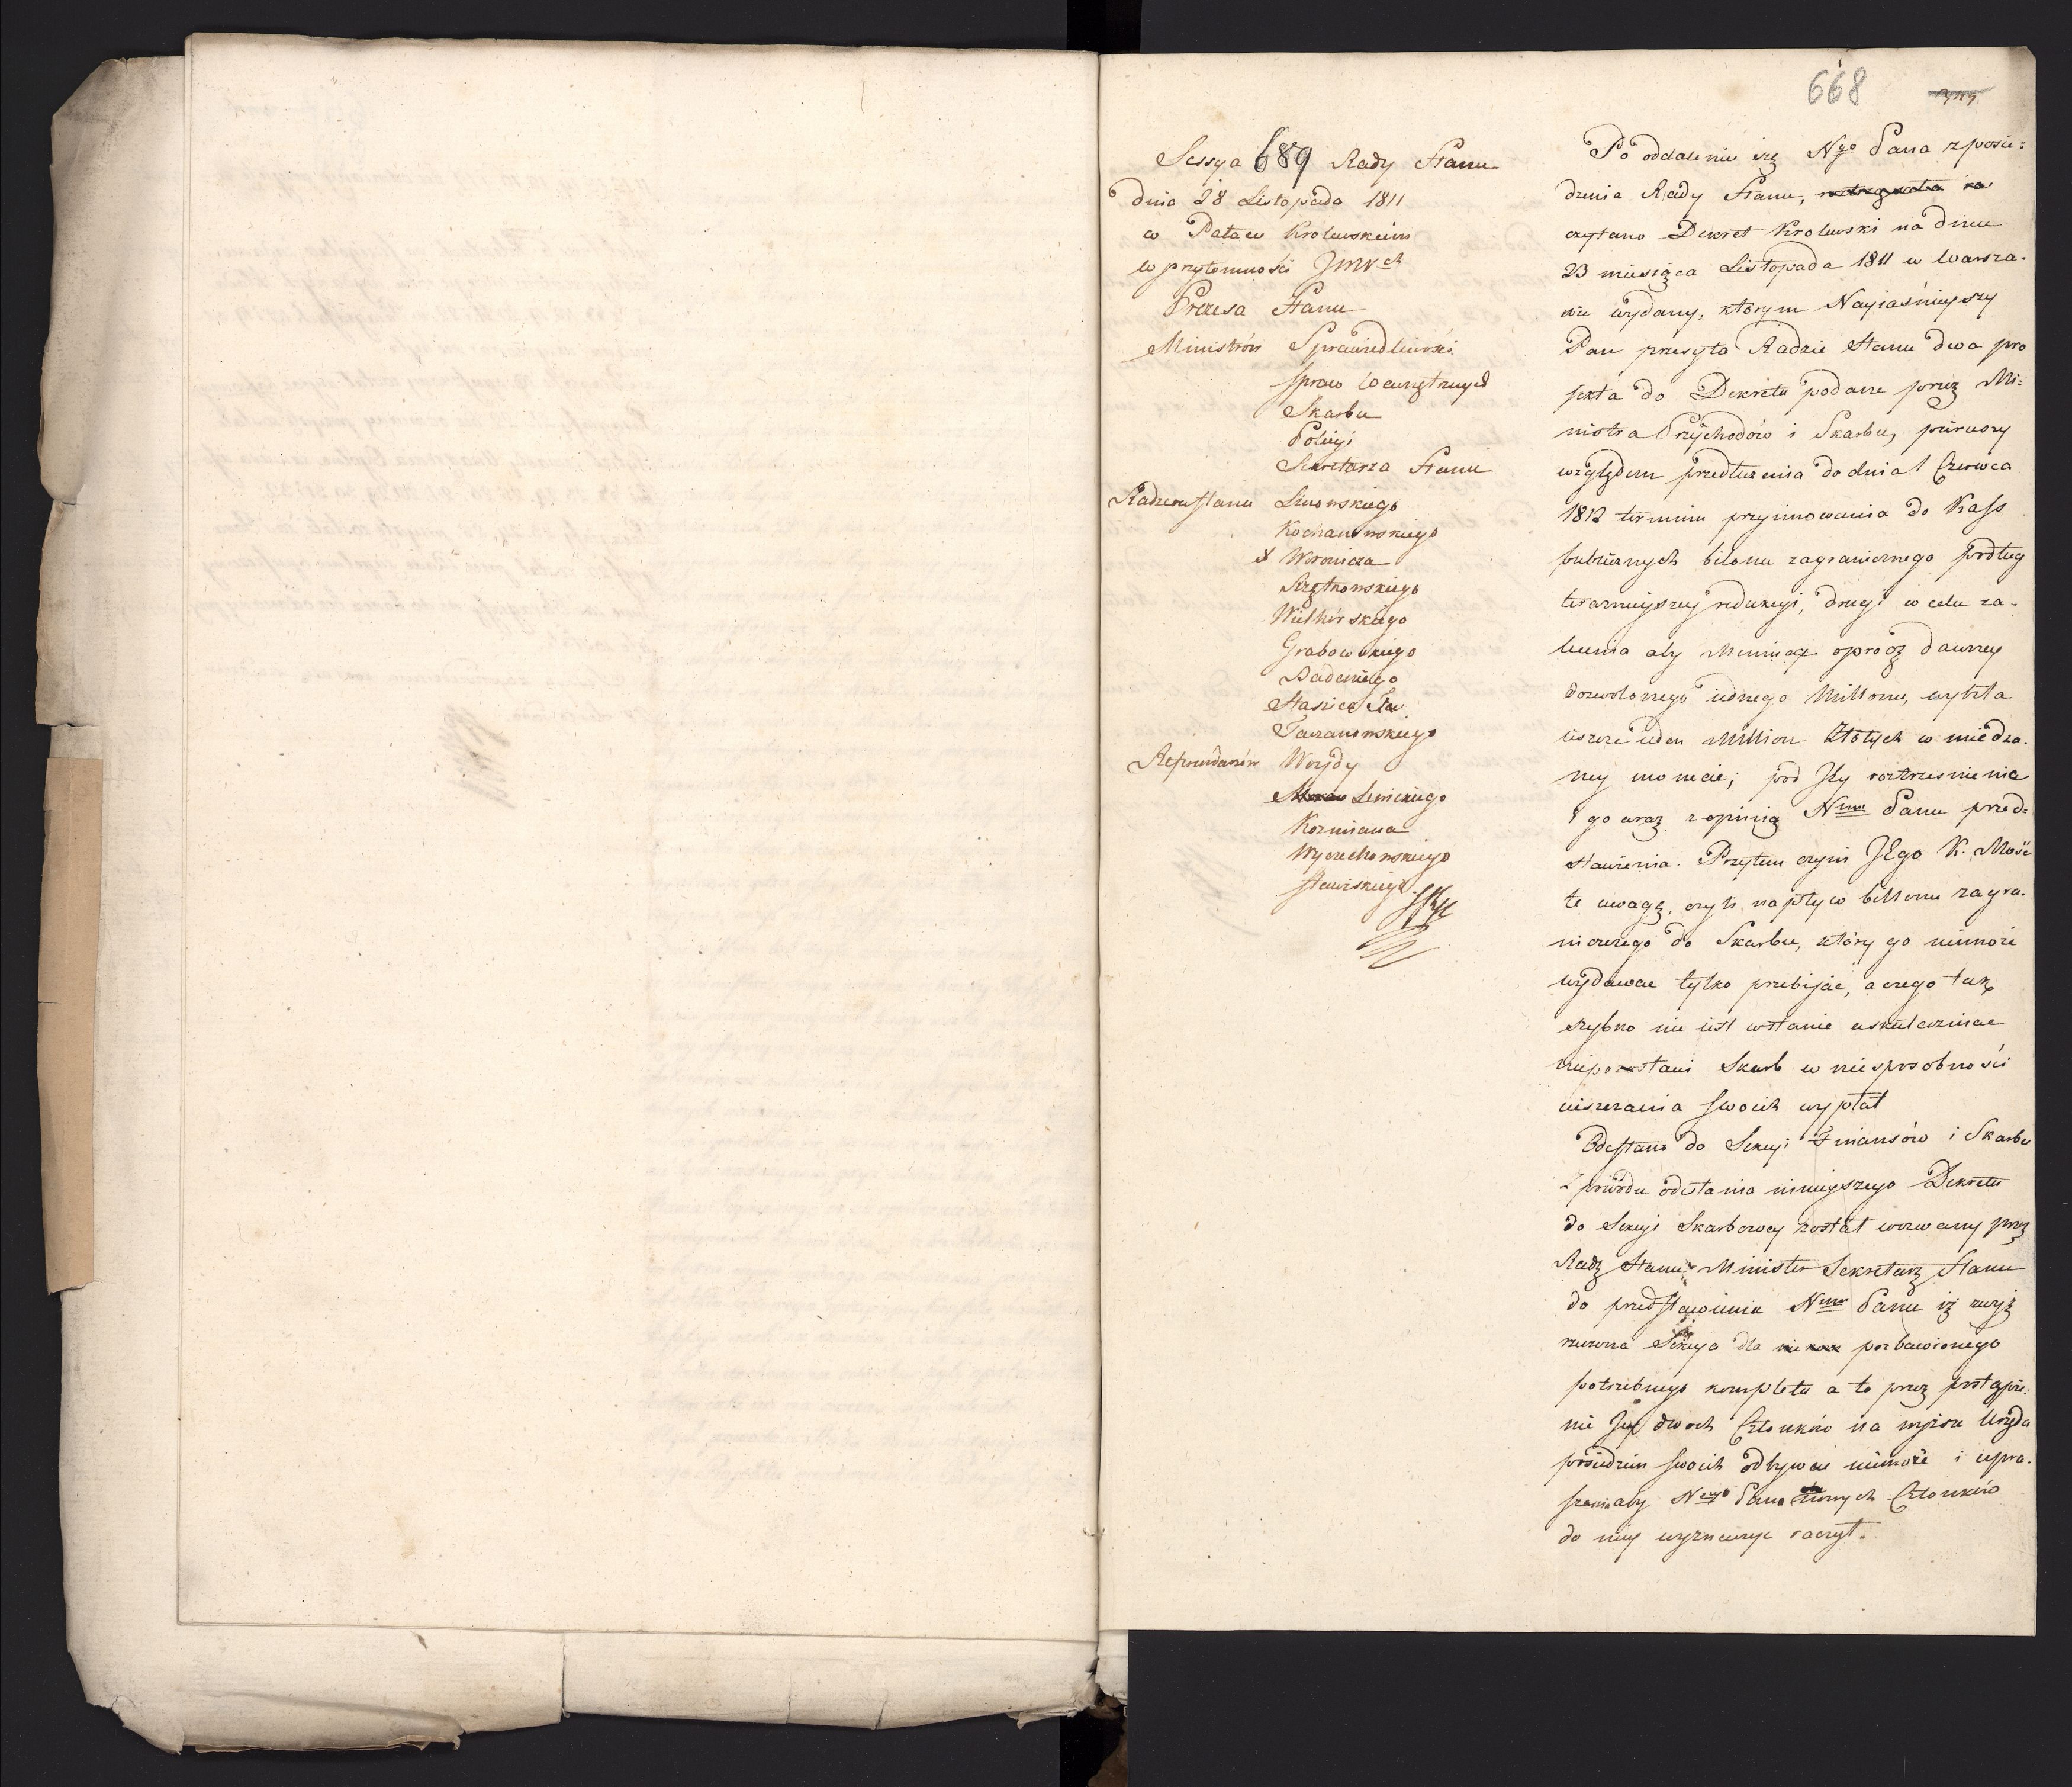 668
Sessya 689 Rady Stanu
dnia 28 Listopada 1811
w Pałacu Krolewskim
w przytomności JmWch
Prezesa Stanu
Ministrów Sprawiedliwości
spraw wewnętrznych
Skarbu
Policyi
Sekretarza Stanu
Radzców Stanu Linowskiego
Kochanowskiego
Woronicza
Wielhórskiego
Grabowskiego
Badeniego
Staszica
Referendarzów Woydy
Lewickiego
Kozmiana
Wyczechowskiego
Po oddaleniu się Ngo Pana z posie:
dzenia Rady Stanu,
czytano Dekret Krolewski na dniu
23 miesiąca Listopada 1811 w Warsza-
wie wydany, którym Nayiaśnieyszy
Pan przesyła Radzie Stanu dwa pro
jekta do Dekretu podane przez Mi:
nistra Przychodów i Skarbu, pierwszy
względem przedłużenia do dnia 1 Czerwca
1812 terminu przyimowania do Kass
publicznych bilonu zagranicznego podług
teraznieyszey redukcyi, drugi w celu za-
lecenia aby Mennica oprócz dawniey
dozwolonego iednego Millionu, wybiła
ieszcze ieden Million Złotych w miedzia-
ney monecie; pod Jey roztrząśnienia
i go wraz z opinią Nmu Panu przed:
stawienia. Przytem czyni JEgo K. Mość
tę uwagę, czyli napływ billonu zagra-
nicznego do Skarbu, który go niemoże
wydawać tylko przebijać, a czego tak
szybko nie iest w stanie uskuteczniać
niepostawi Skarb w niesposobności
uiszczania swoich wypłat
Odesłano do Sekcyi Finansów i Skarbu
Z powodu odesłania ninieyszego Dekretu
do Sekcyi Skarbowey został wezwany przez
Radę Stanu Minister Sekretarz Stanu
do przedstawienia Nmu Panu iż zwyż
rzeczona Sekcya dla pozbawionego
potrzebnego kompletu a to przez postąpie:
nie Jey dwoch Członków na wyższe Urzęda
posiedzeń swoich odbywać niemoże i upra-
szania aby Nayo Pana innych Członków
do niey wyznaczyć raczył.